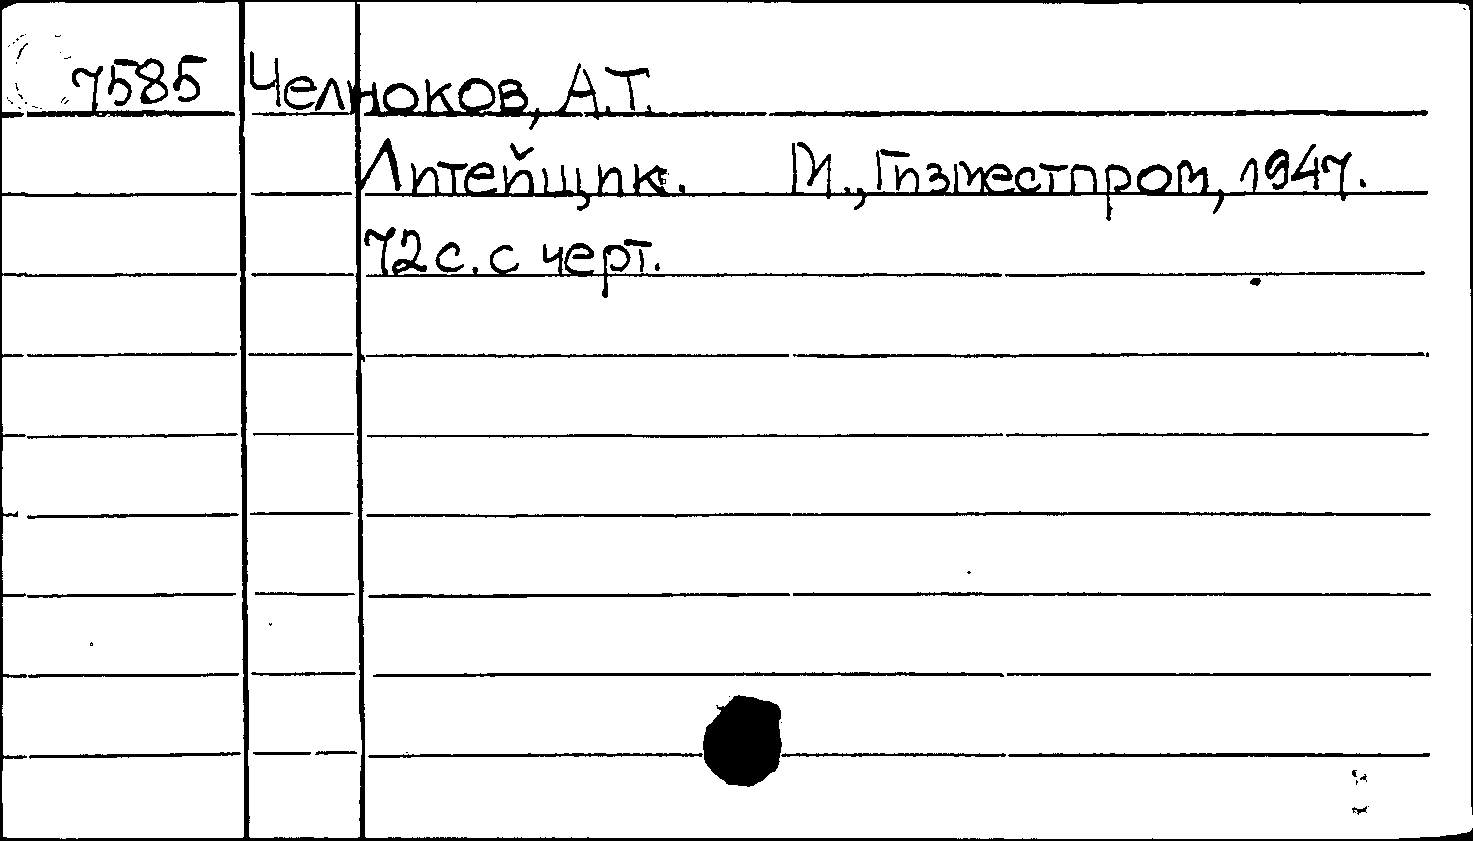 7585 Челноков, А.Т.
Литейщик. М., Гизместпром, 1947.
72 с. с черт.